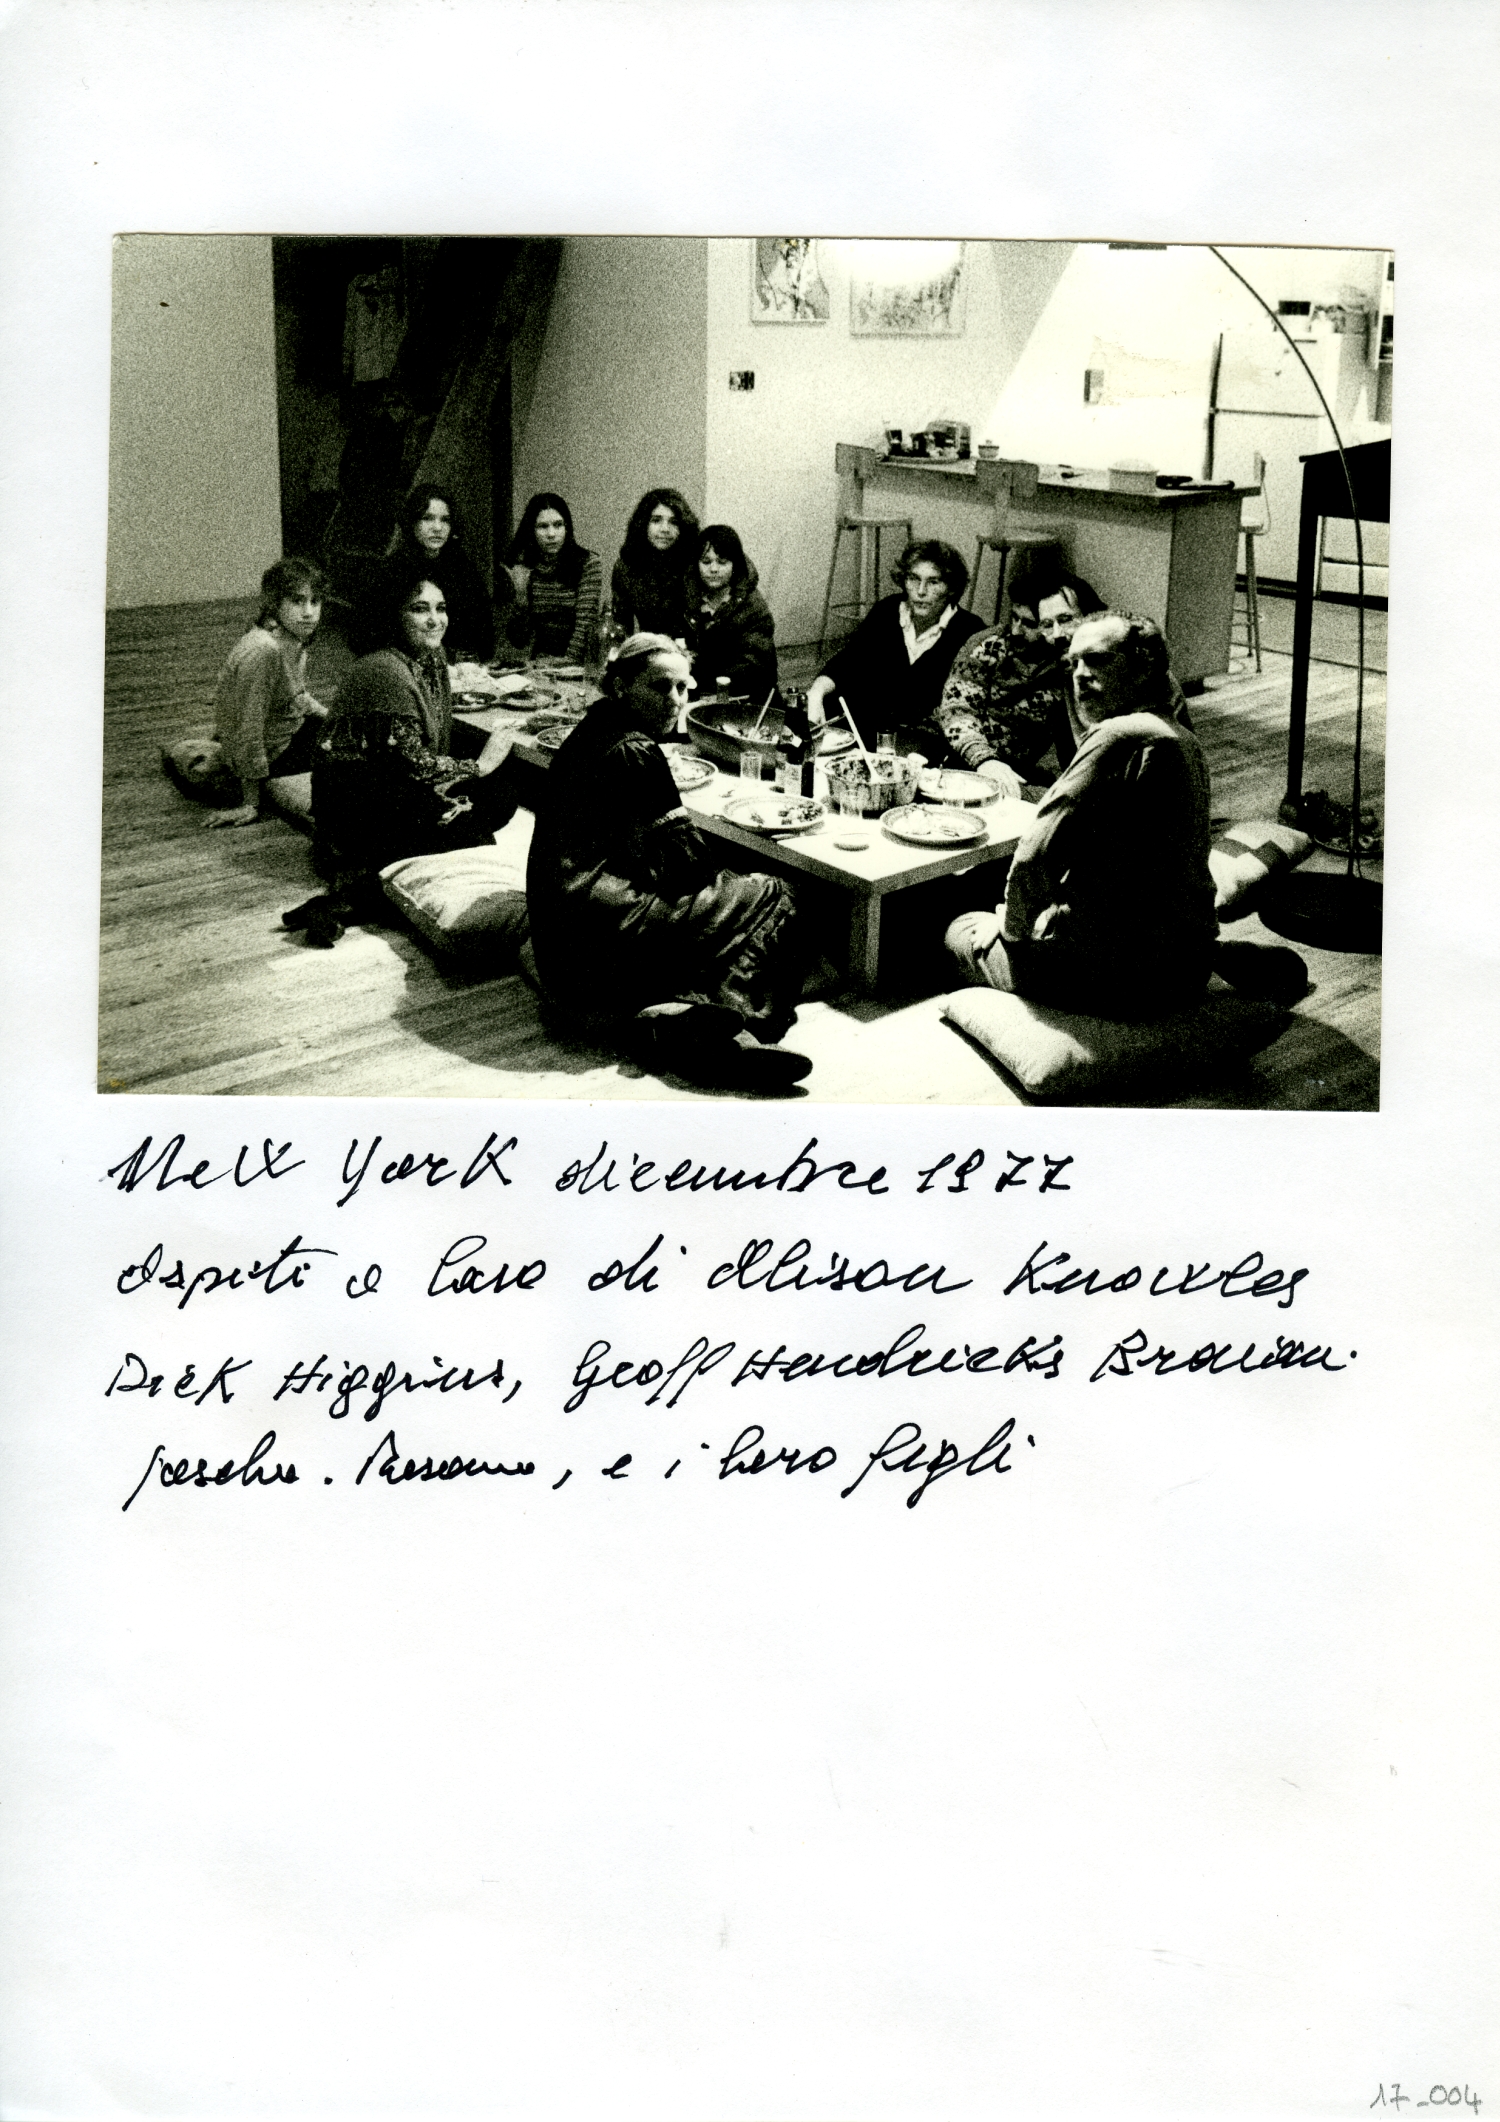 New York dicembre 1977
Ospiti a casa di Alison Knowles
Dick Higgins, Geoff Hendricks Brouian.
, e i loro figli
17_004